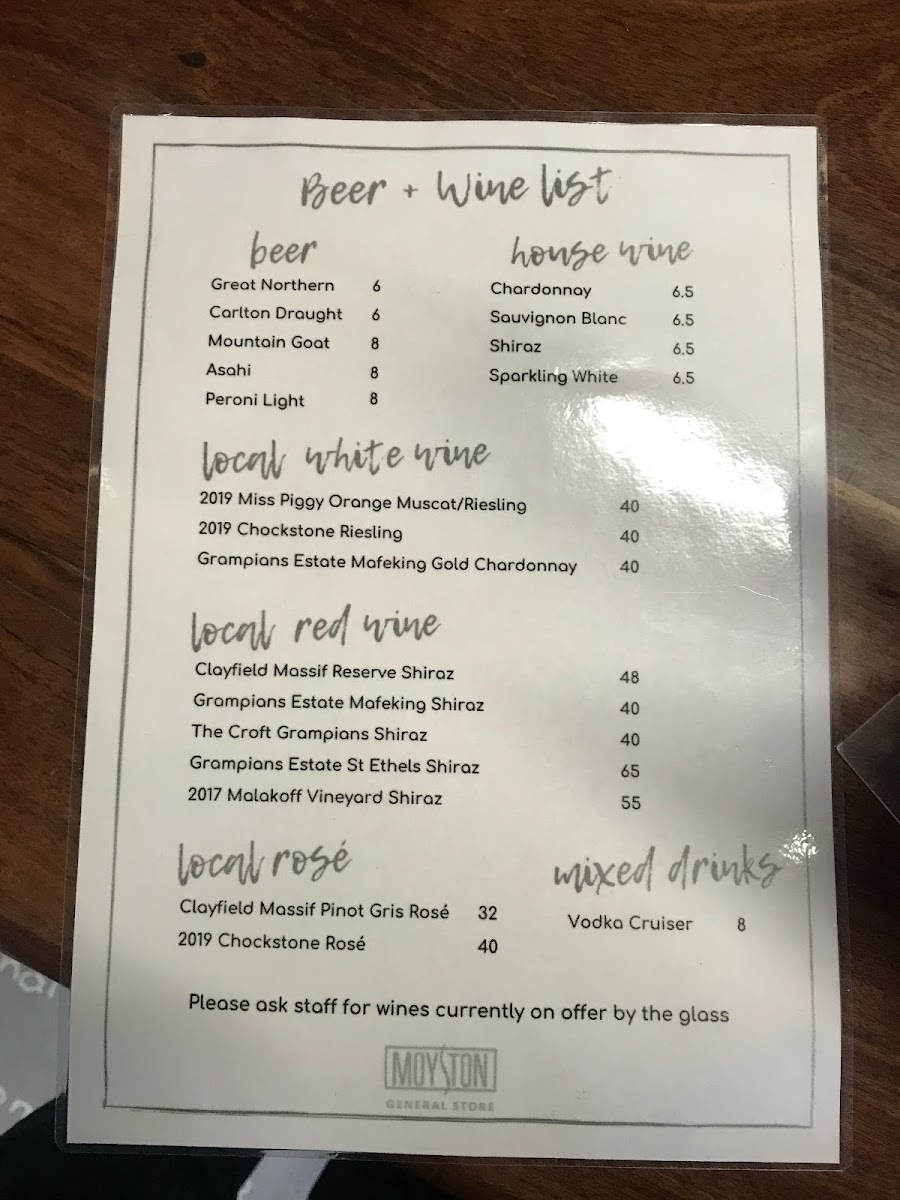 Beer + Wine list
beer
Great Northern 6
Carlton Draught 6
Mountain Goat 8
Asahi 8
Peroni Light 8
house wine
Chardonnay 6.5
Sauvignon Blanc 6.5
Shiraz 6.5
Sparkling White 6.5
local white wine
2019 Miss Piggy Orange Muscat/Riesling 40
2019 Chockstone Riesling 40
Grampians Estate Mafeking Gold Chardonnay 40
local red wine
Clayfield Massif Reserve Shiraz 48
Grampians Estate Mafeking Shiraz 40
The Croft Grampians Shiraz 40
Grampians Estate St Ethels Shiraz 65
2017 Malakoff Vineyard Shiraz 55
local rosé
Clayfield Massif Pinot Gris Rosé 32
2019 Chockstone Rosé 40
mixed drinks
Vodka Cruiser 8
Please ask staff for wines currently on offer by the glass
MOYSTON
GENERAL STORE